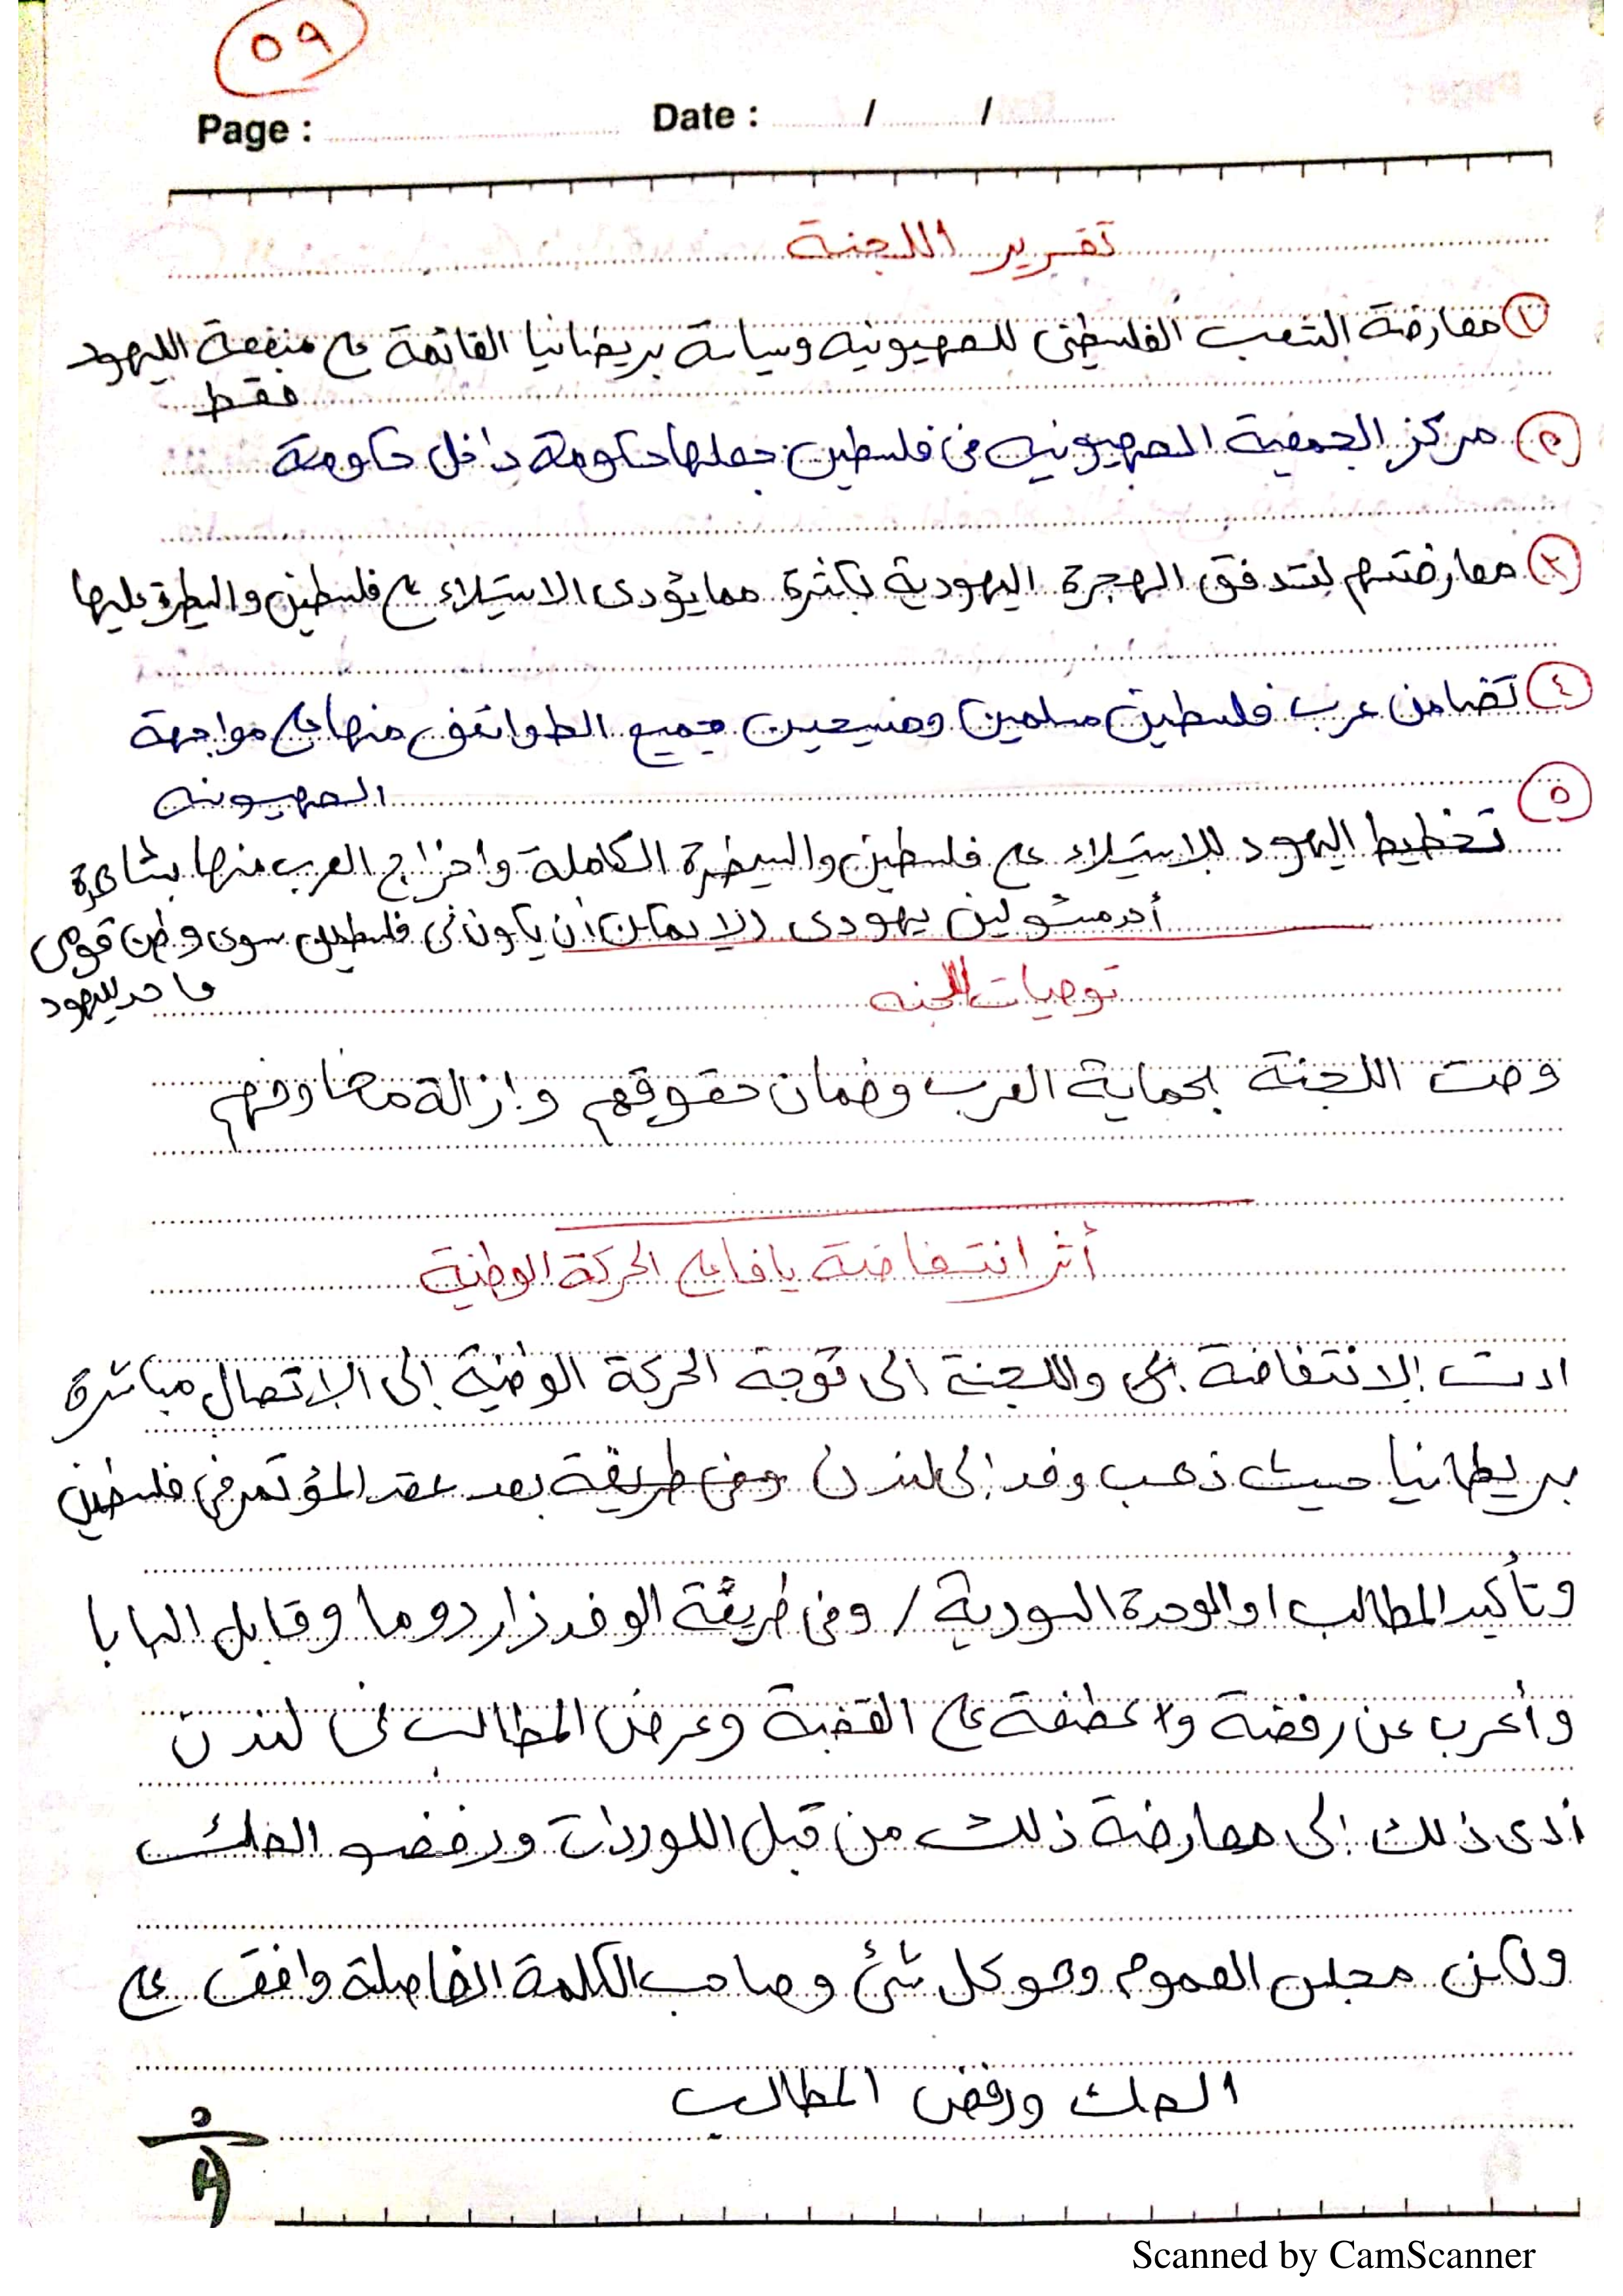 ٥٩
Page : Date : / /
تقرير اللجنة
١ معارضة الشعب الفلسطينى للصهيونيه وسياسة بريطانيا القائمة على منفعة اليهود
فقط
٢ مركز الجمعية الصهيونيه فى فلسطين جعلها حكومة داخل حكومة
٣ معارضتهم لتدفق الهجرة اليهودية بكثرة مما يؤدى الاستيلاء على فلسطين والسيطرة عليها
٤ تضامن عرب فلسطين مسلمين ومسيحين جميع الطوائف منها على مواجهة
الصهيونيه
٥ تخطيط اليهود للاستيلاء على فلسطين والسيطرة الكاملة واخراج العرب منها بشاهدة
أحد مسئولين يهودى (لا يمكن أن يكون فى فلسطين سوى وطن قومى
واحد لليهود
توصيات اللجنه
وصت اللجنة بحماية العرب وضمان حقوقهم وإزالة مخاوفهم
أثر انتفاضة يافا على الحركة الوطنية
ادت الانتفاضة واللجنة الى توجة الحركة الوطنية إلى الإتصال مباشرة
بريطانيا حيث ذهب وفد إلى لندن وفى طريقة بعد عقد المؤتمر فى فلسطين
وتأكيد المطالب او الوحدة السورية / وفى طريقة الوفد زار دوما وقابل البابا
وأعرب عن رفضة و عطفة على القضية وعرض المطالب فى لندن
أدى ذلك إلى معارضة ذلك من قبل اللوردات ورفضو الصك
ولكن مجلس العموم وهو كل شئ وصاحب الكلمة الفاصلة وافق على
الصك ورفض المطالب
Scanned by CamScanner